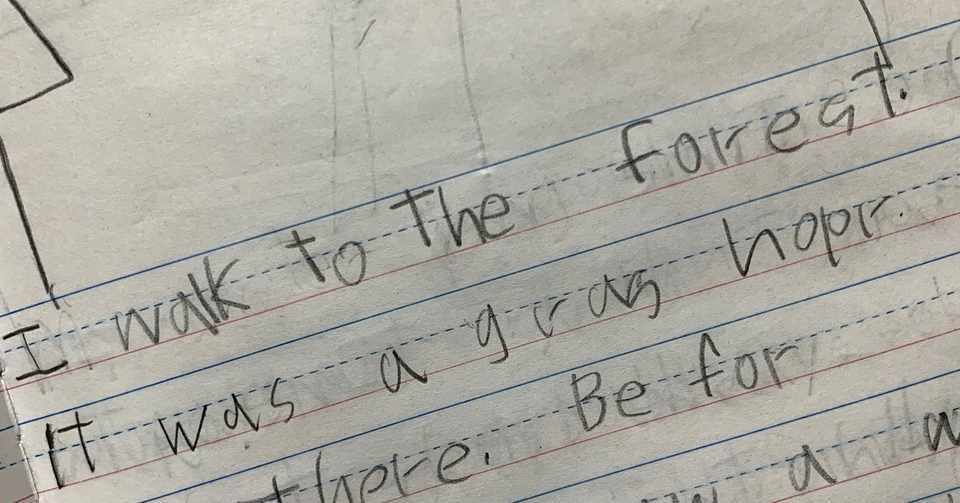 I walk to the forest.
It was a gras hopr.
there. Be for
a